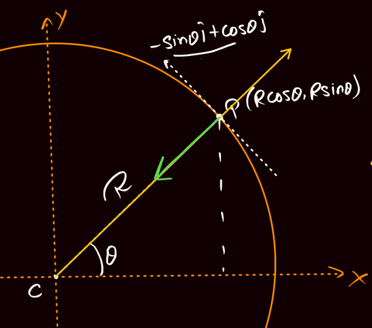 Y
-sinθî+cosθĵ
P(Rcosθ, Rsinθ)
R
θ
C
X